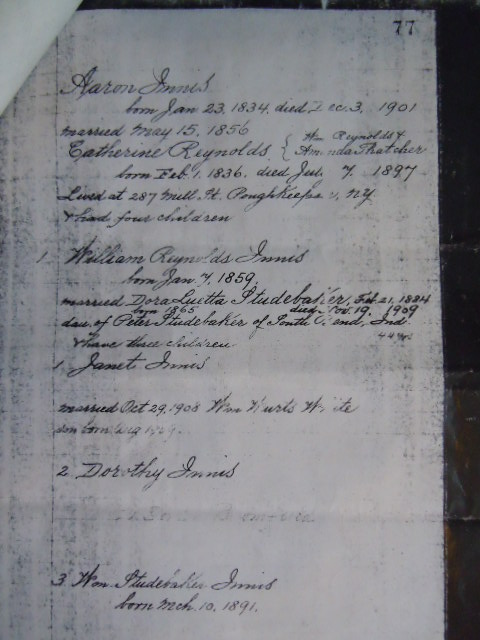 77
Aaron Innis
born Jan 23, 1834, died Dec. 3, 1901
married May 15, 1856
Catherine Reynolds { Wm Reynolds & Amanda Thatcher
born Feb 1, 1836, died 7, 1897
Lived at 287 Mill St. Poughkeepsie, NY
& had four children
1. William Reynolds Innis
born Jan 7, 1859,
married Dora Luetta Studebaker, Feb. 21, 1884
born 1865 died Nov. 19, 1909
dau of Peter Studebaker of South Bend, Ind.
& have three children
1. Janet Innis
married Oct 29, 1908 Wm Wurts White
son born
2. Dorothy Innis
3. Wm Studebaker Innis
born Mch. 10, 1891.